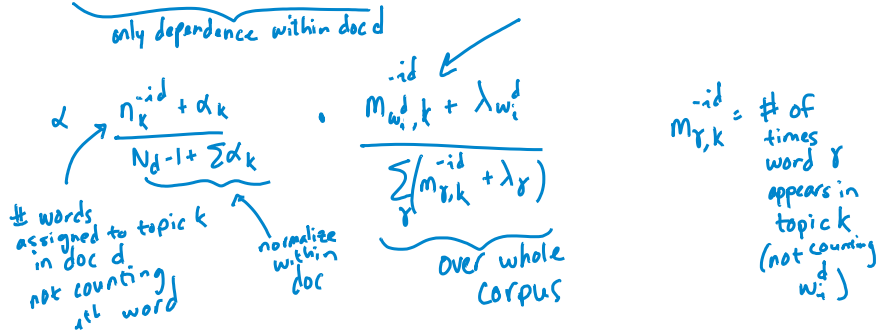 only dependence within doc d
∝ (n_k^{-id} + α_k) / (N_d - 1 + Σα_k) · (m_{w_i^d,k}^{-id} + λ_{w_i^d}) / (Σ_γ (m_{γ,k}^{-id} + λ_γ))
# words
assigned to topic k
in doc d
not counting
ith word
normalize
within
doc
over whole
corpus
m_{γ,k}^{-id} = # of
times
word γ
appears in
topic k
(not counting
w_i^d)